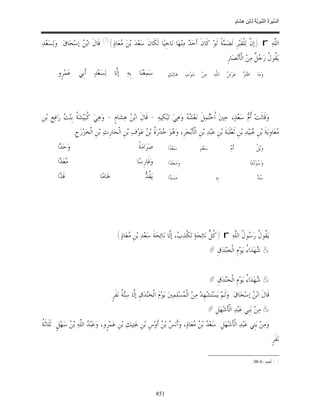 السِّيرَةُ النَّبَوِيَّةُ لِابْنِ هِشَامٍ
اللَّهِ r (إِنَّ لِلْقَبْرِ لَضَمَّةً لَوْ كَانَ أَحَدٌ مِنْهَا نَاجِيًا لَكَانَ سَعْدَ بْنَ مُعَاذٍ) قَالَ ابْنُ إِسْحَاقَ: وَلِسَعْدٍ
يَقُولُ رَجُلٌ مِنَ الْأَنْصَارِ:
وَمَا اهْتَزَّ عَرْشُ اللَّهِ مِنْ مَوْتِ هَالِكٍ سَمِعْنَا بِهِ إِلَّا لِسَعْدٍ أَبِي عَمْرِو
وَقَالَتْ أُمُّ سَعْدٍ، حِينَ اُحْتُمِلَ نَعْشُهُ وَهِيَ تَبْكِيهِ - قَالَ ابْنُ هِشَامٍ - وَهِيَ كُبَيْشَةُ بِنْتُ رَافِعِ بْنِ
مُعَاوِيَةَ بْنِ عُبَيْدِ بْنِ ثَعْلَبَةَ بْنِ عَبْدِ بْنِ الْأَبْجَرِ، وَهُوَ خُدْرَةُ بْنُ عَوْفِ بْنِ الْحَارِثِ بْنِ الْخَزْرَجِ:
وَيْلُ أُمِّ سَعْدٍ سَعْدًا صَرَامَةً وَحَدًّا
وَسُؤْدُدًا وَمَجْدًا وَفَارِسًا مُعَدًّا
سُدَّ بِهِ مَسَدًّا يَقُدُّ هَامًا قَدًّا
يَقُولُ رَسُولُ اللَّهِ r (كُلُّ نَائِحَةٍ تَكْذِبُ، إِلَّا نَائِحَةَ سَعْدِ بْنِ مُعَاذٍ)
شُهَدَاءُ يَوْمِ الْخَنْدَقِ
شُهَدَاءُ يَوْمِ الْخَنْدَقِ
قَالَ ابْنُ إِسْحَاقَ: وَلَمْ يَسْتَشْهِدْ مِنْ الْمُسْلِمِينَ يَوْمَ الْخَنْدَقِ إِلَّا سِتَّةُ نَفَرٍ.
مِنْ بَنِي عَبْدِ الْأَشْهَلِ
وَمِنْ بَنِي عَبْدِ الْأَشْهَلِ: سَعْدُ بْنُ مُعَاذٍ، وَأَنَسُ بْنُ أَوْسِ بْنِ عَتِيكِ بْنِ عَمْرٍو، وَعَبْدُ اللَّهِ بْنُ سَهْلٍ. ثَلَاثَةُ
نَفَرٍ.
851